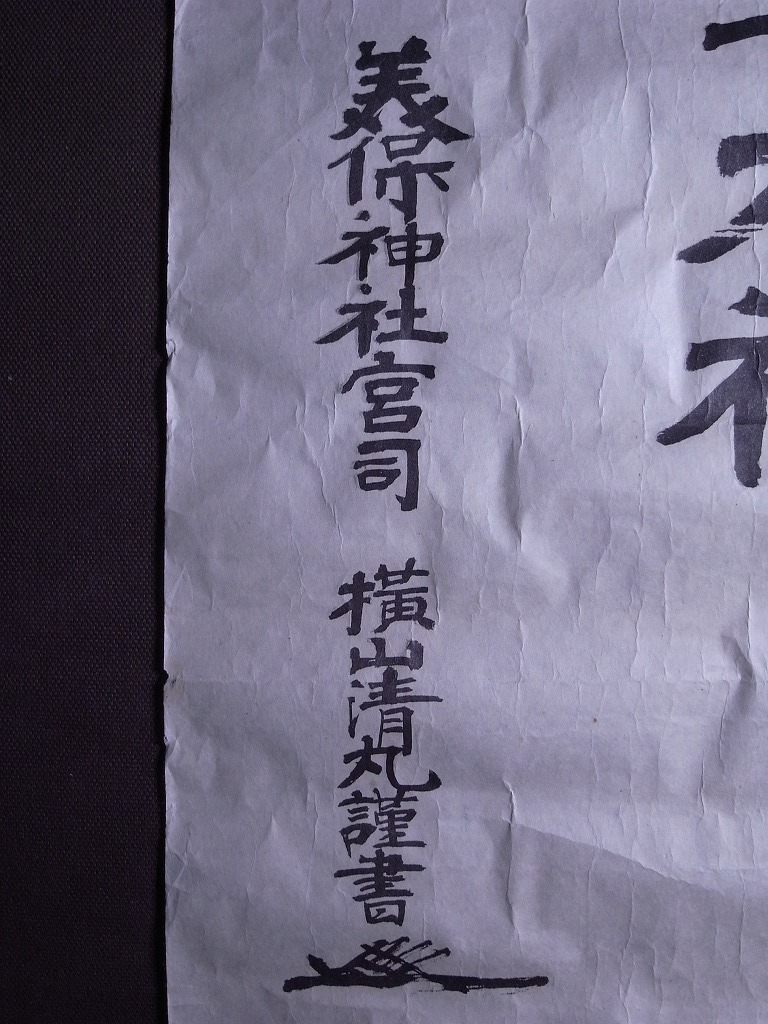 美保神社宮司　横山清丸謹書